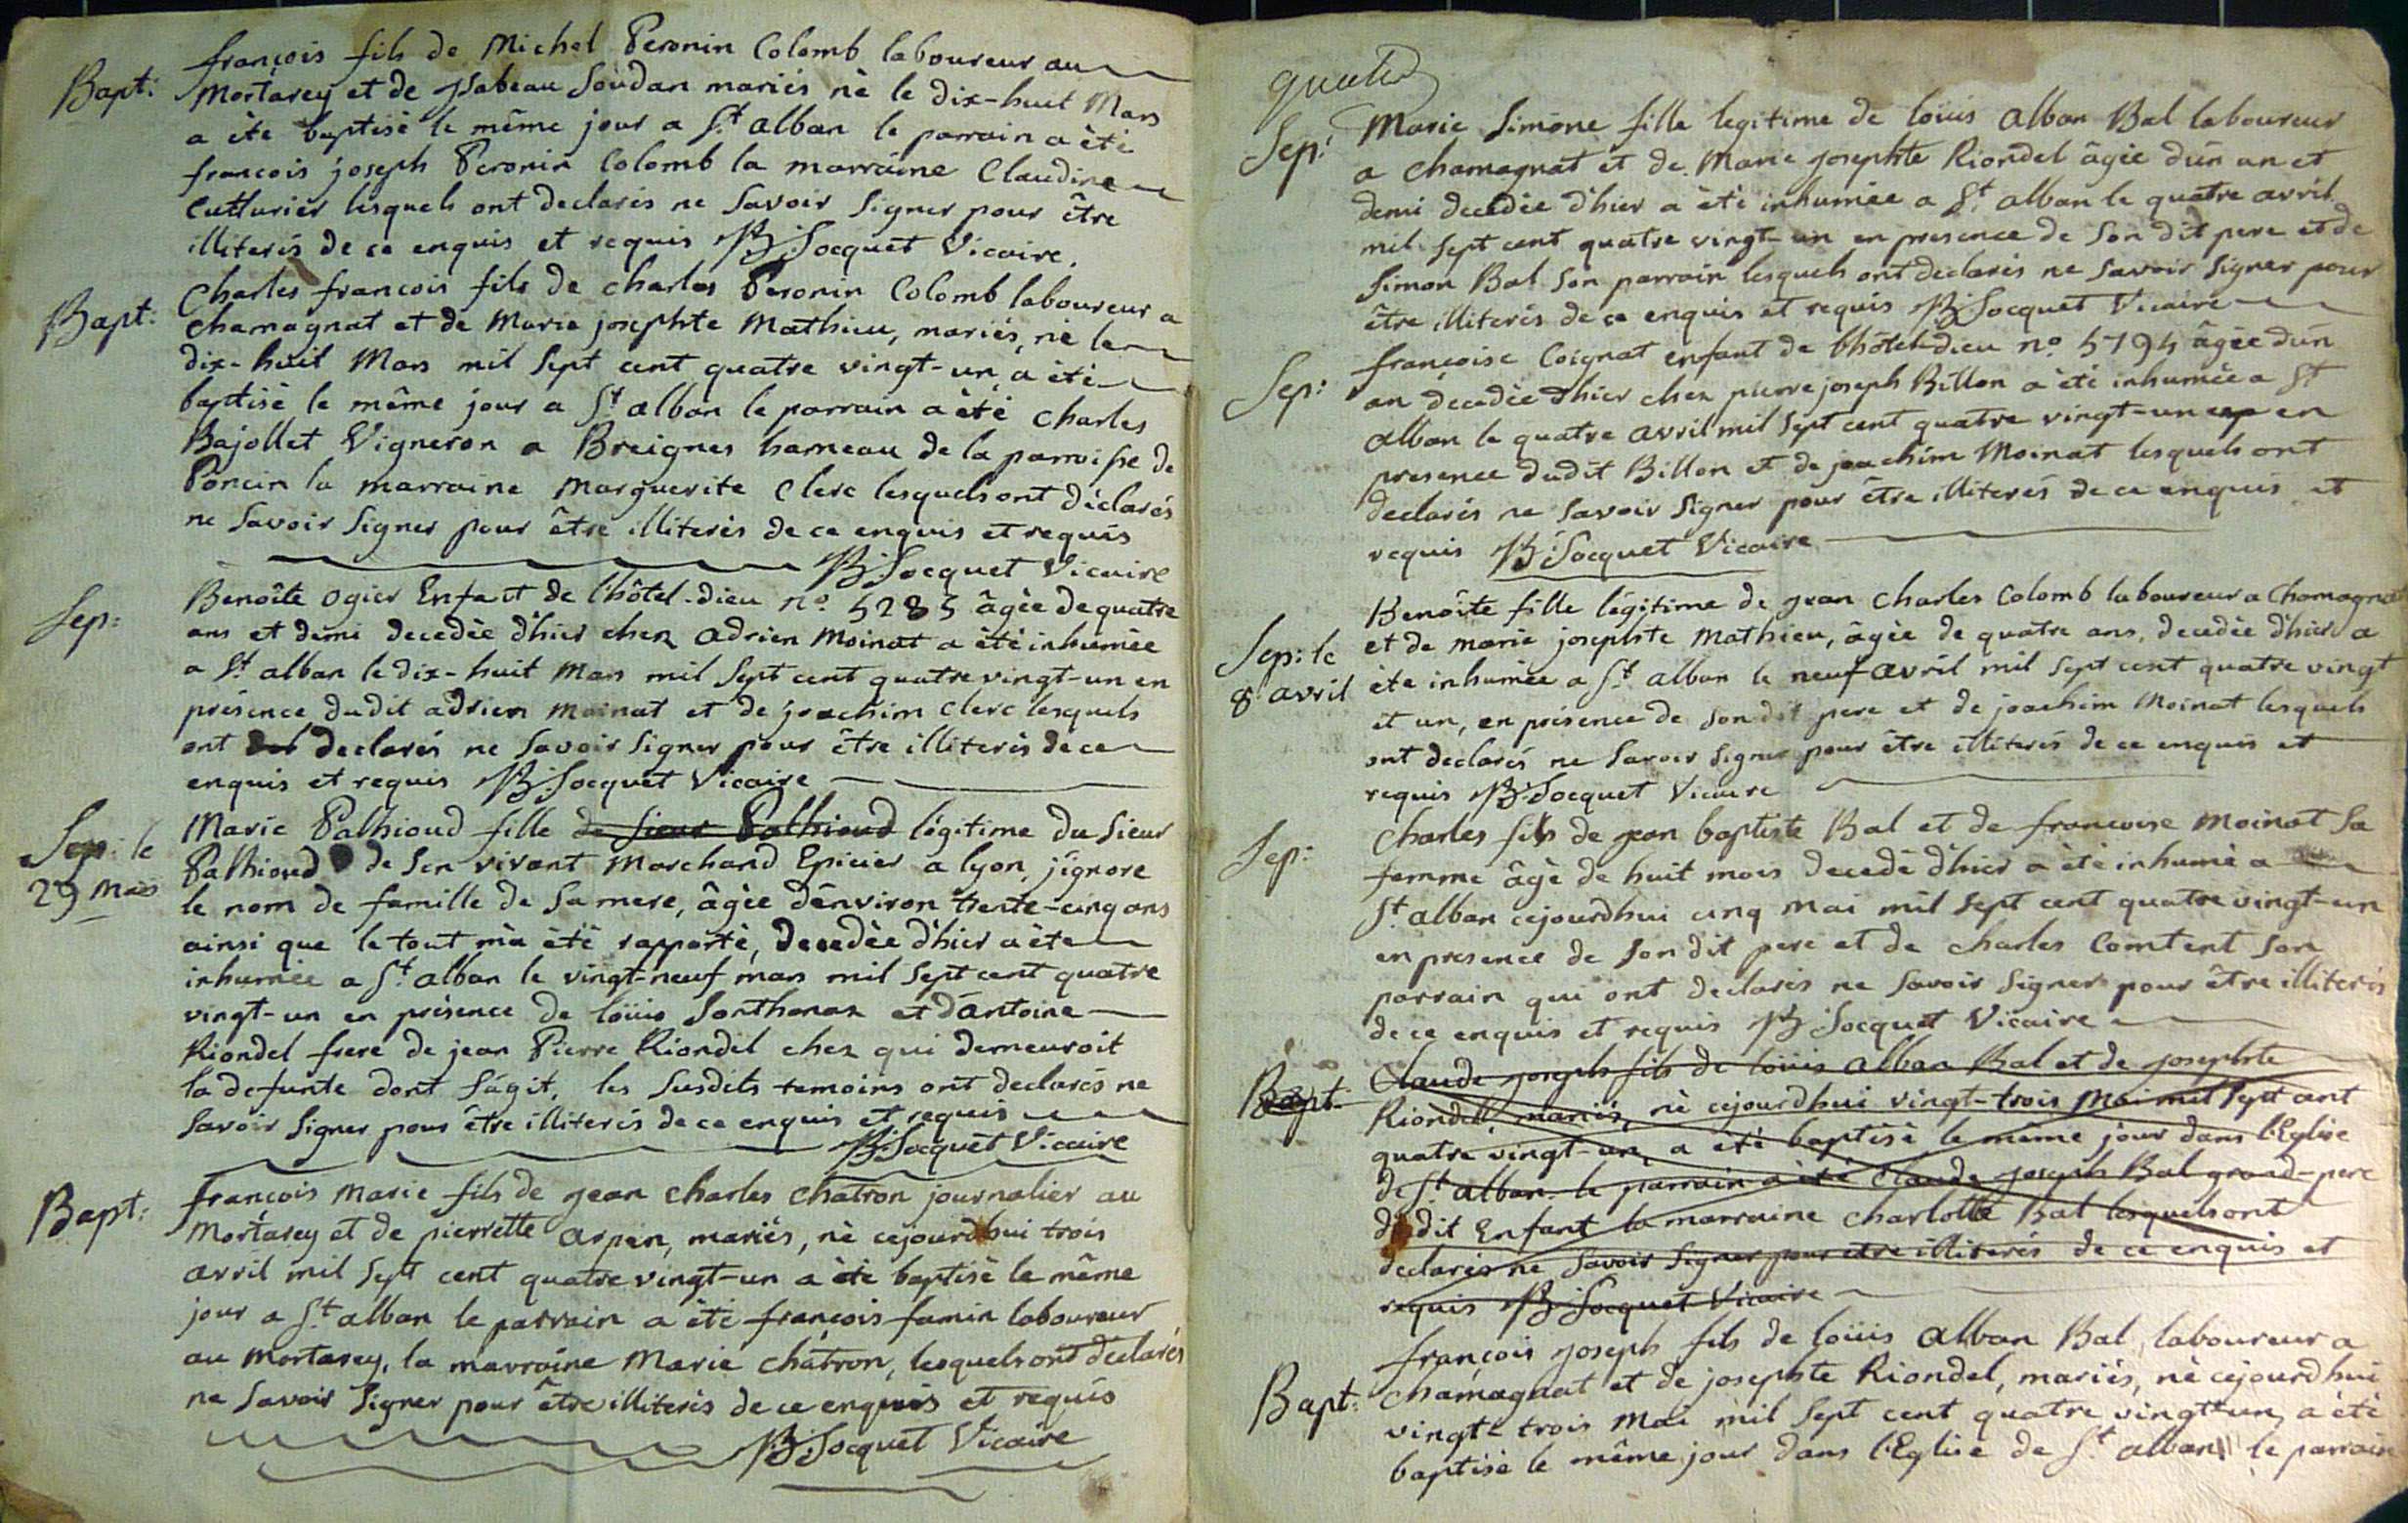 Bapt:
françois fils de Michel Peronin Colomb laboureur au
Mortarey et de ysabeau Soudan mariés nè le dix-huit Mars
a ète baptisè le même jour a St alban le parrain a èté
francois joseph Peronin Colomb la marraine Claudine
Cutturier lesquels ont declarés ne Savoir Signer pour être
illiterés de ce enquis et requis JB: Socquet Vicaire.
Bapt:
Charles francois fils de charles Peronin Colomb laboureur a
chamagnat et de Marie josephte Mathieu, mariés, nè le
dix-huit Mars mil Sept cent quatre vingt-un, a ètè
baptisè le même jour a St alban le parrain a èté Charles
Bajollet Vigneron a Breignes hameau de la parroisse de
Poncin la marraine Marguerite Clerc lesquels ont déclarés
ne Savoir Signer pour être illiterés de ce enquis et requis
JB Socquet Vicaire
Sep:
Benoîte ogier Enfant de l'hôtel-dieu no. 5285 âgèe de quatre
ans et demi decedèe d'hier chez adrien Moinat a étè inhumèe
a St alban le dix-huit Mars mil Sept cent quatre vingt-un en
présence dudit adrien Moinat et de joachim Clerc lesquels
ont declarés ne Savoir Signer pour être illiterés de ce
enquis et requis JB: Socquet Vicaire
Sep: le
29 Mars
Marie Pathioud fille de Sieur Pathioud légitime du Sieur
Pathioud de Son vivant Marchand Epicier a lyon, j'ignore
le nom de famille de Sa mere, âgèe d'environ trente-cinq ans
ainsi que le tout m'a ètè rapportè, decedèe d'hier a ète
inhumèe a St alban le vingt-neuf mars mil Sept cent quatre
vingt-un en présence de loüis Sonthonax et d'antoine
Riondel frere de jean Pierre Riondel chez qui demeuroit
la defunte dont s'agit, les Susdits temoins ont declarés ne
Savoir Signer pour être illiterés de ce enquis et requis
JB: Socquet Vicaire
Bapt:
françois Marie fils de jean charles chatron journalier au
Mortarey et de pierrette arpin, mariés, nè cejourdhui trois
avril mil Sept cent quatre vingt-un a ètè baptisè le même
jour a St alban le parrain a étè françois famin laboureur
au Mortarey, la marraine Marie chatron, lesquels ont declarés
ne Savoir Signer pour être illiterés de ce enquis et requis
JB: Socquet Vicaire
quatre
Sep:
Marie Simone fille legitime de loüis alban Bal laboureur
a chamagnat et de Marie josephte Riondel âgèe d'un an et
demi decedèe d'hier a èté inhumèe a St alban le quatre avril
mil Sept cent quatre vingt-un en presence de Son dit pere et de
Simon Bal Son parrain lesquels ont declarés ne Savoir Signer pour
être illiterés de ce enquis et requis JB: Socquet Vicaire
Sep:
françoise Coignat enfant de l'hôtel-dieu no. 5794 âgèe d'un
an decedèe d'hier chez pierre joseph Billon a ètè inhumèe a St
alban le quatre avril mil Sept cent quatre vingt-un en
presence dudit Billon et de joachim Moinat lesquels ont
declarés ne Savoir Signer pour être illiterés de ce enquis et
requis JB: Socquet Vicaire
Sep: le
8 avril
Benoîte fille légitime de jean Charles Colomb laboureur a Chamagnat
et de marie josephte Mathieu, âgèe de quatre ans, decedèe d'hier a
ète inhumèe a St alban le neuf avril mil Sept cent quatre vingt
et un, en présence de Son dit pere et de joachim Moinat lesquels
ont declarés ne Savoir Signer pour être illiterés de ce enquis et
requis JB: Socquet Vicaire
Sep:
Charles fils de jean baptiste Bal et de francoise Moinat Sa
femme âgè de huit mois decedè d'hier a ètè inhumè a
St alban cejourdhui cinq Mai mil Sept cent quatre vingt-un
en presence de Son dit pere et de charles Comtent Son
parrain qui ont declarés ne Savoir Signer pour être illiterés
de ce enquis et requis JB: Socquet Vicaire
Bapt:
Claude joseph fils de loüis alban Bal et de josephte
Riondel, mariés, nè cejourdhui vingt-trois Mai mil Sept cent
quatre vingt-un, a ètè baptisè le même jour dans l'Eglise
de St alban. le parrain a ètè Claude joseph Bal grand-pere
dudit Enfant la marraine charlotte Bal lesquels ont
declarés ne Savoir Signer pour etre illiterés de ce enquis et
requis JB: Socquet Vicaire
Bapt:
françois joseph fils de loüis alban Bal, laboureur a
chamagnat et de josephte Riondel, mariés, nè cejourdhui
vingt-trois Mai mil Sept cent quatre vingt-un, a ètè
baptisè le même jour dans l'Eglise de St alban le parrain